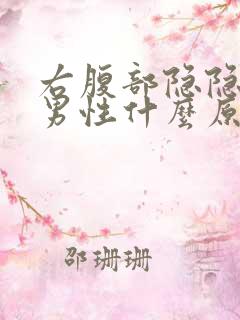 右腹部隐隐
男性什麼原
邵珊珊